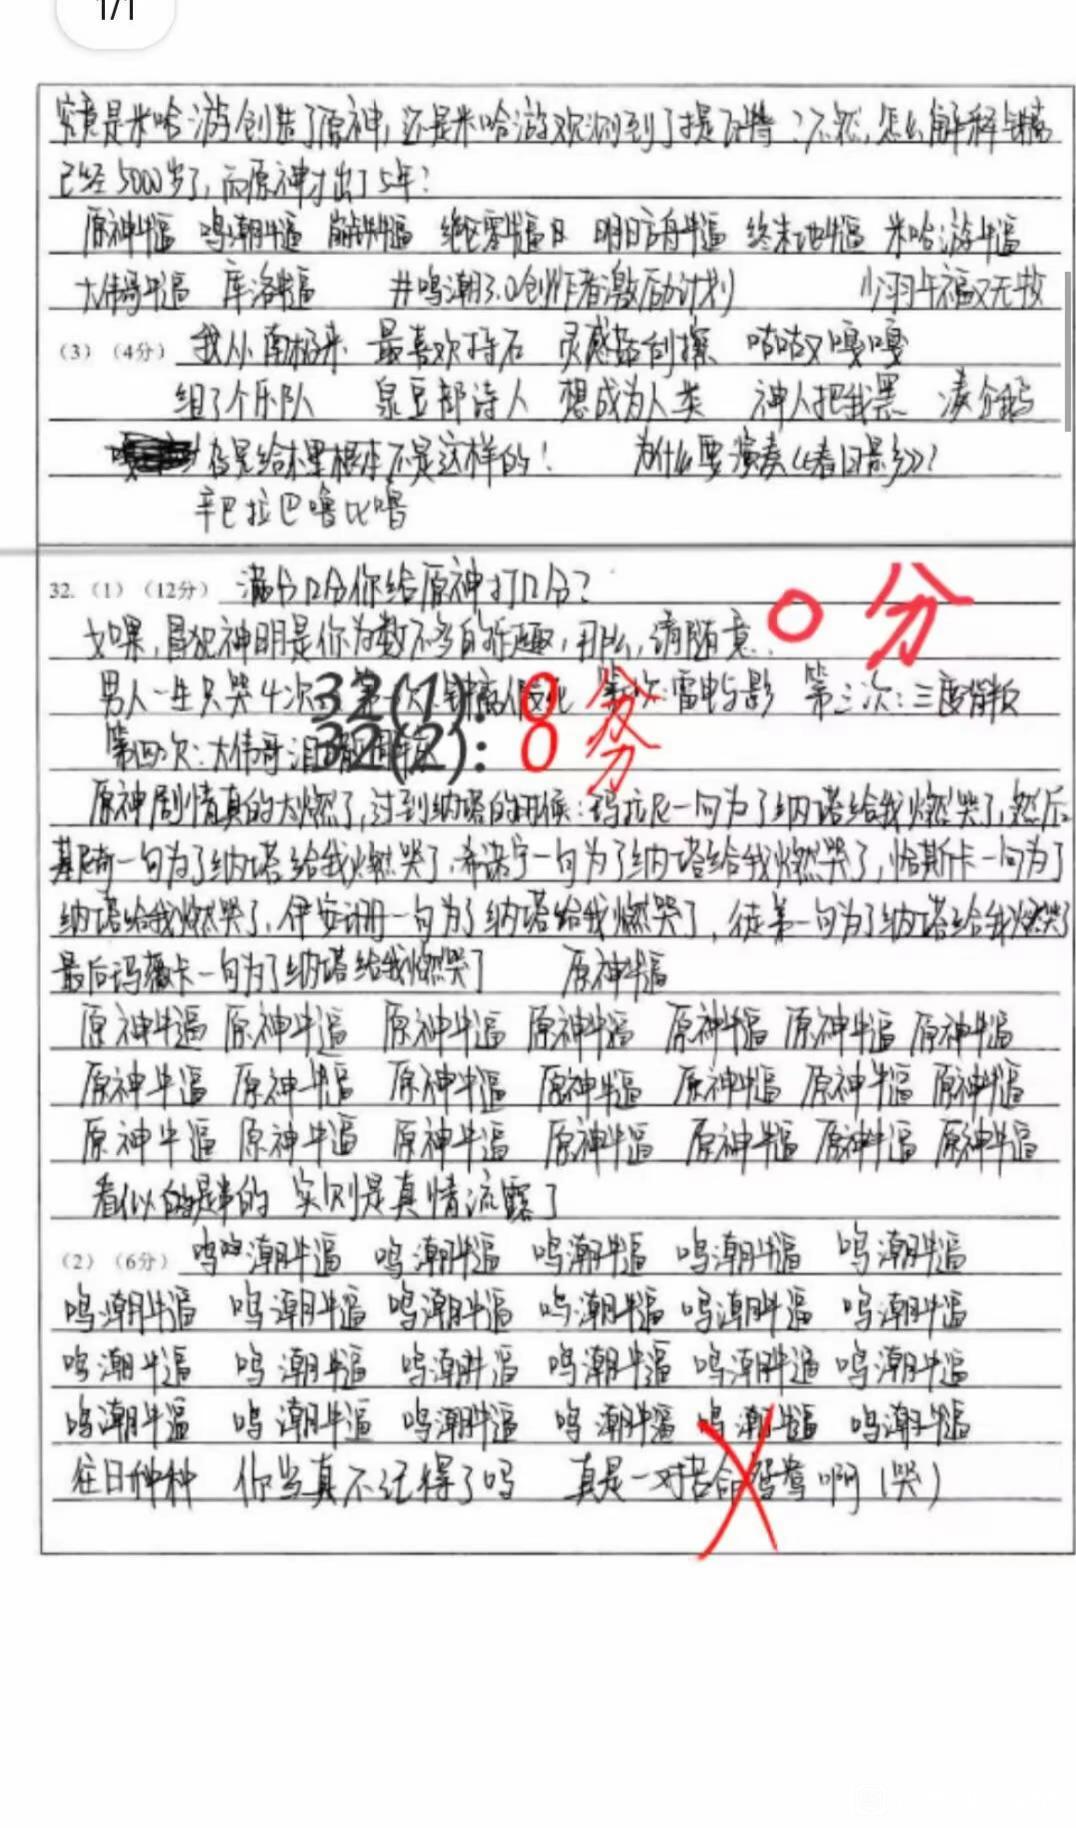 1/1
究竟是米哈游创造了原神,还是米哈游观测到了提瓦特?不然,怎么解释钟离
已经5000岁了,而原神才出了5年?
原神牛逼 鸣潮牛逼 崩铁牛逼 绝区零牛逼 明日方舟牛逼 终末地牛逼 米哈游牛逼
大伟哥牛逼 库洛牛逼 #鸣潮3.0创作者激励计划
(3)(4分) 我从南极来 最喜欢持石 灵感菇刮擦 咕咕又嘎嘎
组了个乐队 泉豆都诗人 想成为人类 神人把我黑 凑企鹅
不是这样的! 为什么要演奏《春日影》?
辛巴拉巴噜比噜
32.(1)(12分) 满分12分你给原神打几分?
如果,冒犯神明是你为数不多的乐趣,那么,请随意. 0分
男人一生只哭4次 第一次:钟离假死 第二次:雷电与影 第三次:三度背叛
32(1): 0分
第四次:大伟哥泪
32(2): 0分
原神剧情真的太燃了,过到纳塔的时候:玛拉尼一句为了纳塔给我燃哭了,然后
基尼奇一句为了纳塔给我燃哭了,希诺宁一句为了纳塔给我燃哭了,恰斯卡一句为了
纳塔给我燃哭了,伊安珊一句为了纳塔给我燃哭了,一句为了纳塔给我燃哭了
最后玛薇卡一句为了纳塔给我燃哭了 原神牛逼
原神牛逼 原神牛逼 原神牛逼 原神牛逼 原神牛逼 原神牛逼 原神牛逼
原神牛逼 原神牛逼 原神牛逼 原神牛逼 原神牛逼 原神牛逼 原神牛逼
原神牛逼 原神牛逼 原神牛逼 原神牛逼 原神牛逼 原神牛逼 原神牛逼
看似 实则是真情流露了
(2)(6分) 鸣潮牛逼 鸣潮牛逼 鸣潮牛逼 鸣潮牛逼 鸣潮牛逼
鸣潮牛逼 鸣潮牛逼 鸣潮牛逼 鸣潮牛逼 鸣潮牛逼 鸣潮牛逼
鸣潮牛逼 鸣潮牛逼 鸣潮牛逼 鸣潮牛逼 鸣潮牛逼 鸣潮牛逼
鸣潮牛逼 鸣潮牛逼 鸣潮牛逼 鸣潮牛逼 鸣潮牛逼 鸣潮牛逼
往日种种 你当真不记得了吗 真是一对苦命鸳鸯啊(哭)